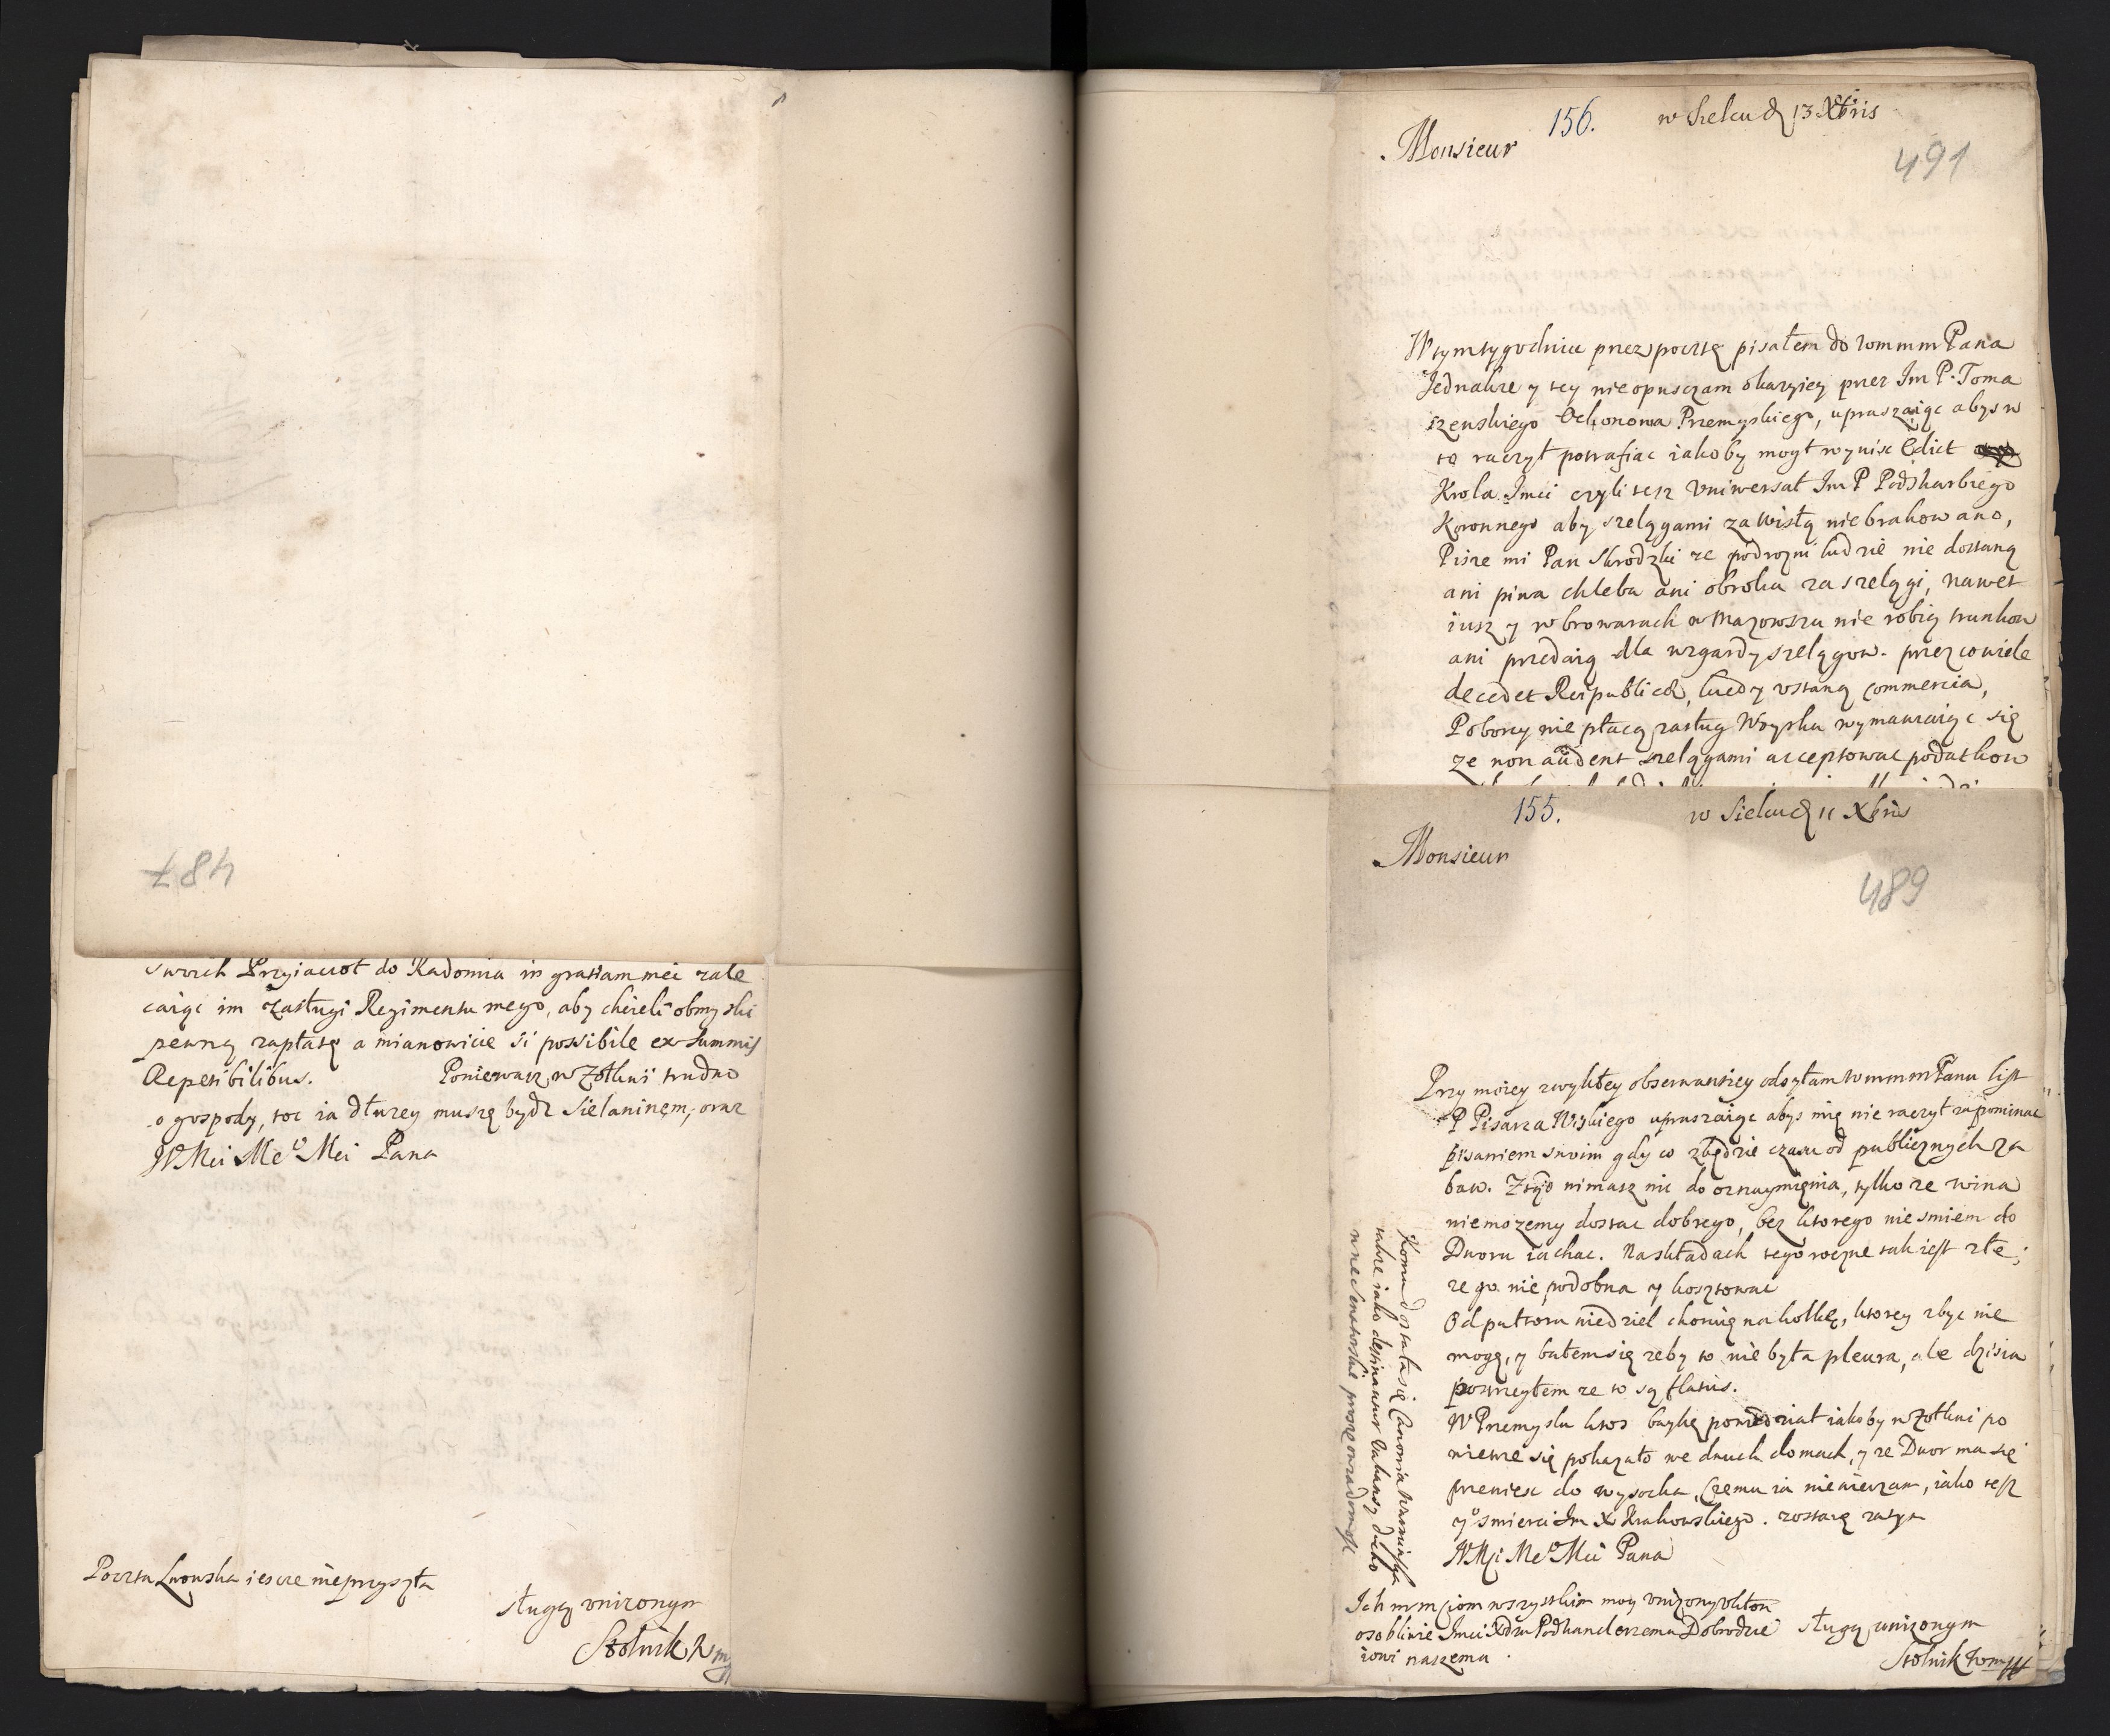 487
swoich Przyiaciot do Radomia in gratiam mei zale
caiąc im zasługi Regimentu mego, aby chcieli obmyslić
pewną zapłatę a mianowicie si possibile ex summis
Repetibilibus. Poniewasz w Zołkwi trudno
o gospody, toc ia dłuzey muszę bydz Sielaninem, oraz
WMci Meo Mci Pana
Poczta Lwowska iescze nieprzyszła
sługą unizonym
Stolnik
156. w Sielcu d 13 Xbris
Monsieur
491
W tym tygodniu przez pocztę pisałem do wmmm Pana
Jednakze y tey nie opusczam okazyiey przez Im P. Toma
szewskiego Ekonoma Przemyskiego, upraszaiąc abys w
to raczył potrafiac iakoby mogł wynisc Edict
Krola Imci czyli tesz Vniwersał Im P Podskarbiego
Koronnego aby szelągami za Wisłą nie brakowano,
Pisze mi Pan Skrodzki ze podrozni ludzie nie dostaną
ani piwa chleba ani obroku za szelągi, nawet
iusz y w browarach w Mazowszu nie robią trunkow
ani przedaią dla wzgardy szelągow. przez co wiele
decedet Reipublicæ, kiedy ustaną commercia,
Poborcy nie płacą zasług Woysku wymawiaiąc się
ze non audent szelągami acceptowac podatkow
155. w Sielcu d 11 Xbris
Monsieur
489
Przy moiey zwykłey obserwantiey odsyłam wmmm Panu list
P Pisarza Wiskiego upraszaiąc abys mię nie raczył zapominac
pisaniem swoim gdy co zbędzie czasu od publicznych za
baw. Ztąd nimasz nic do oznaymięnia, tylko ze wina
niemozemy dostac dobrego, bez ktorego niesmiem do
Dworu iachac. Na składach tegoroczne tak iest złe,
ze go nie podobna y kosztowac
Od pułtoru niedziel choruię na kolkę, ktorey zbyc nie
mogę, y bałem się zeby to nie była pleura, ale dzisia
postrzegłem ze to są flatus.
W Przemyslu ktos baykę powiedział iakoby w Zołkwi po
wietrze się pokazało we dwuch domach, y ze Dwor ma się
przeniesc do Wysocka, czemu ia niewierzam, iako tesz
y o smierci Im X Krakowskiego. zostaię zatym
WMci Meo Mci Pana
Ich mmciom wszystkim moy unizony ukłon
osobliwie Imci Xdzu Podkanclerzemu Dobrodzie
iowi naszemu
sługą unizonym
Stolnik
Komu dostała się Canonia Warminska
takze iako destinantur Vakansy
proszę o wiadomosc